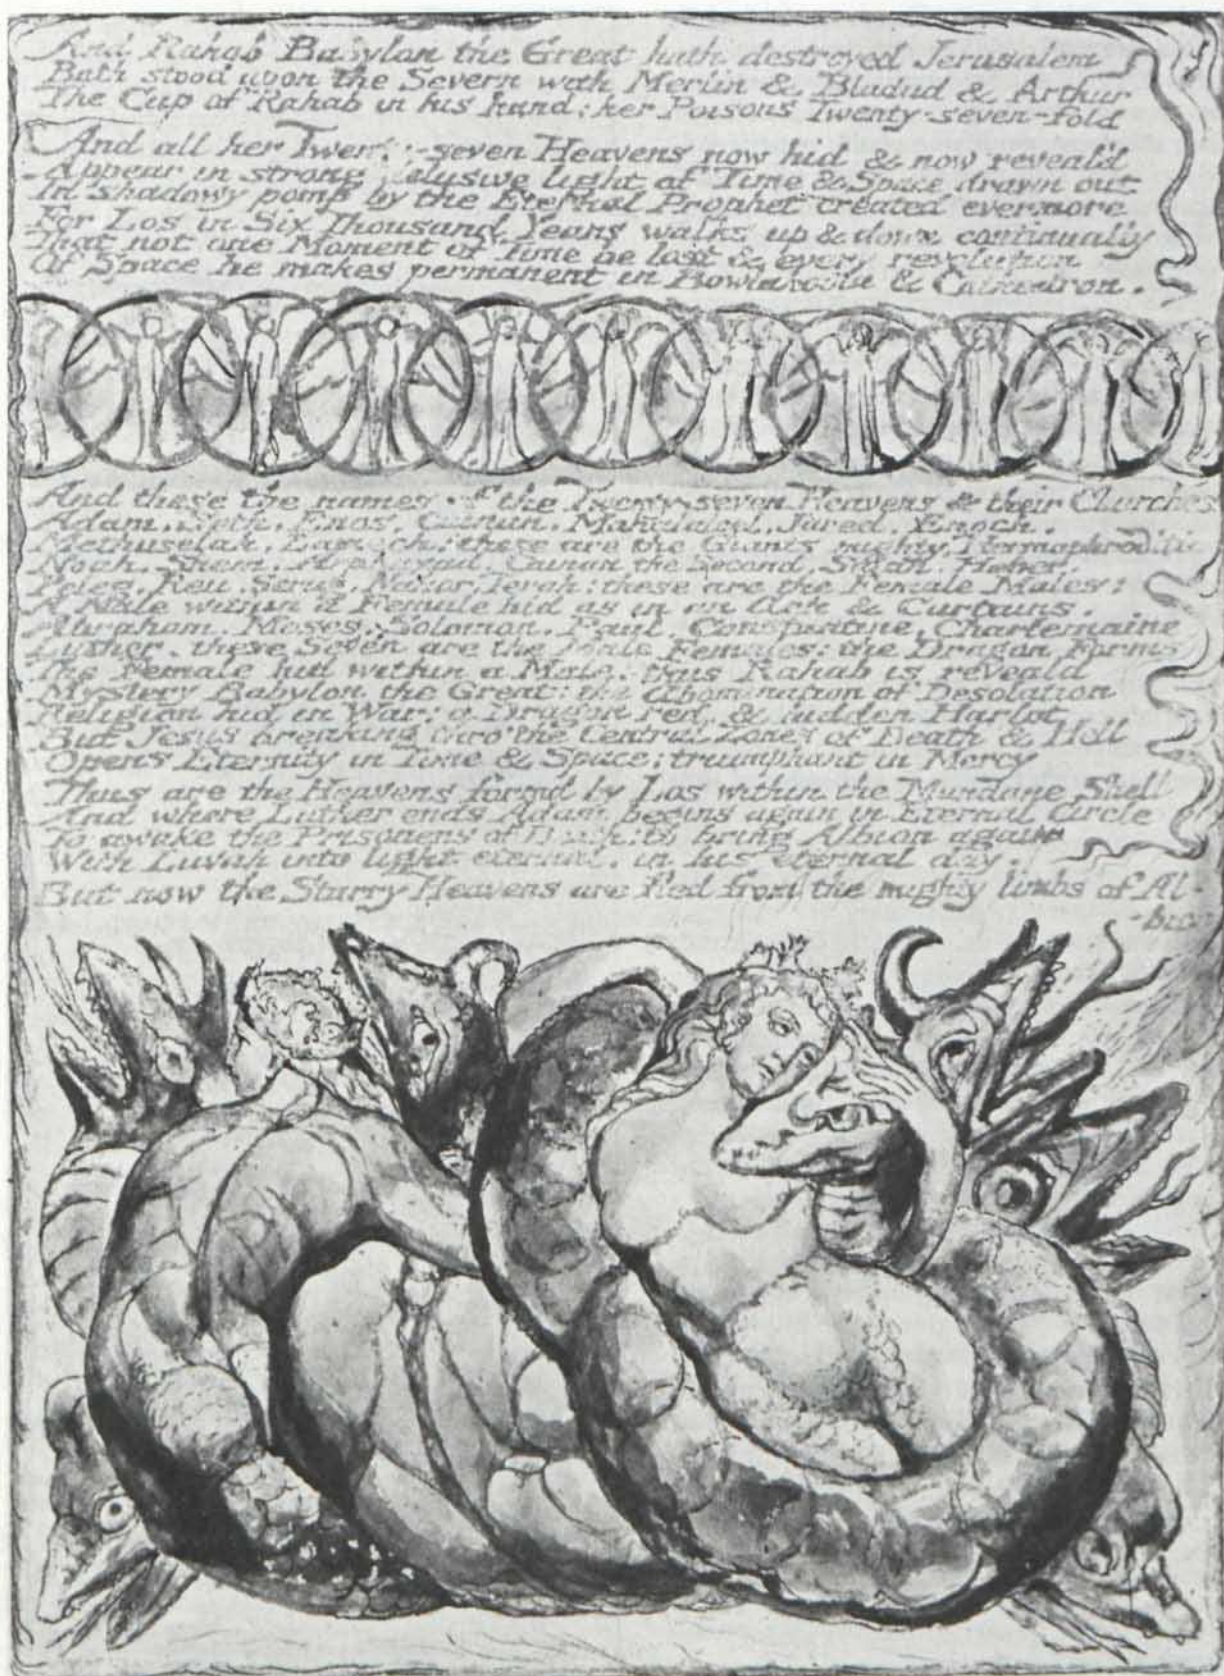 And Rahab Babylon the Great hath destroyed Jerusalem
Bath stood upon the Severn with Merlin & Bladud & Arthur
The Cup of Rahab in his hand: her Poisons Twenty-seven-fold
And all her Twenty-seven Heavens now hid & now reveal'd
Appear in strong delusive light of Time & Space drawn out
In shadowy pomp by the Eternal Prophet created evermore
For Los in Six Thousand Years walks up & down continually
That not one Moment of Time be lost & every revolution
Of Space he makes permanent in Bowlahoola & Cathedron.
And these the names of the Twenty-seven Heavens & their Churches
Adam. Seth. Enos. Cainan. Mahalaleel. Jared. Enoch.
Methuselah. Lamech: these are the Giants mighty, Hermaphroditic
Noah. Shem. Arphaxad. Cainan the Second. Salah. Heber.
Peleg. Reu. Serug. Nahor. Terah: these are the Female Males:
A Male within a Female hid as in an Ark & Curtains.
Abraham. Moses. Solomon. Paul. Constantine. Charlemaine
Luther. these Seven are the Male Females: the Dragon Forms
The Female hid within a Male: thus Rahab is reveald
Mystery Babylon the Great: the Abomination of Desolation
Religion hid in War: a Dragon red, & hidden Harlot
But Jesus breaking thro' the Central Zones of Death & Hell
Opens Eternity in Time & Space; triumphant in Mercy
Thus are the Heavens formd by Los within the Mundane Shell
And where Luther ends Adam begins again in Eternal Circle
To awake the Prisoners of Death; to bring Albion again
With Luvah into light eternal. in his eternal day.
But now the Starry Heavens are fled from the mighty limbs of Al-
-bion